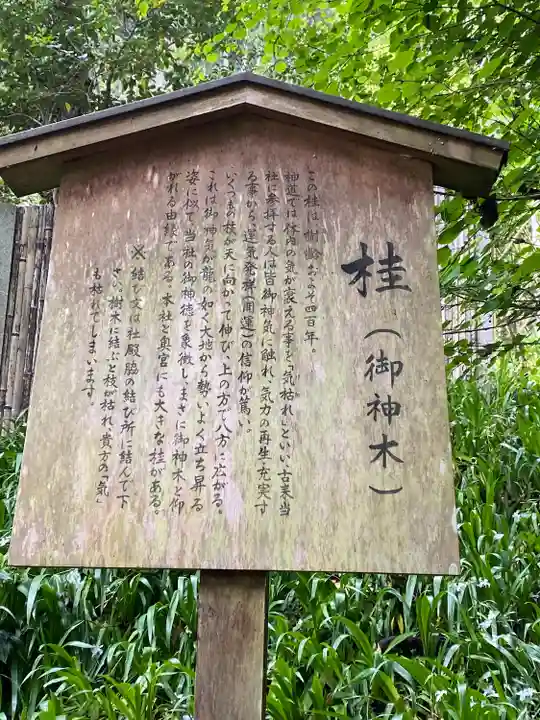 桂（御神木）
この桂は、樹齢およそ四百年。
神道では体内の気が衰える事を「気枯れ」といい、古来当
社に参拝する人は皆御神気に触れ、気力の再生・充実す
る事から「運気発祥（開運）の信仰が篤い。
いくつもの枝が天に向かって伸び、上の方で八方に広がる。
これは御神気が龍の如く大地から勢いよく立ち昇る
姿に似て当社の御神徳を象徴し、まさに御神木と仰
がれる由縁である。本社と奥宮にも大きな桂がある。
※結び文は社殿脇の結び所に結んで下
さい。樹木に結ぶと枝が枯れ、貴方の「気」
も枯れてしまいます。